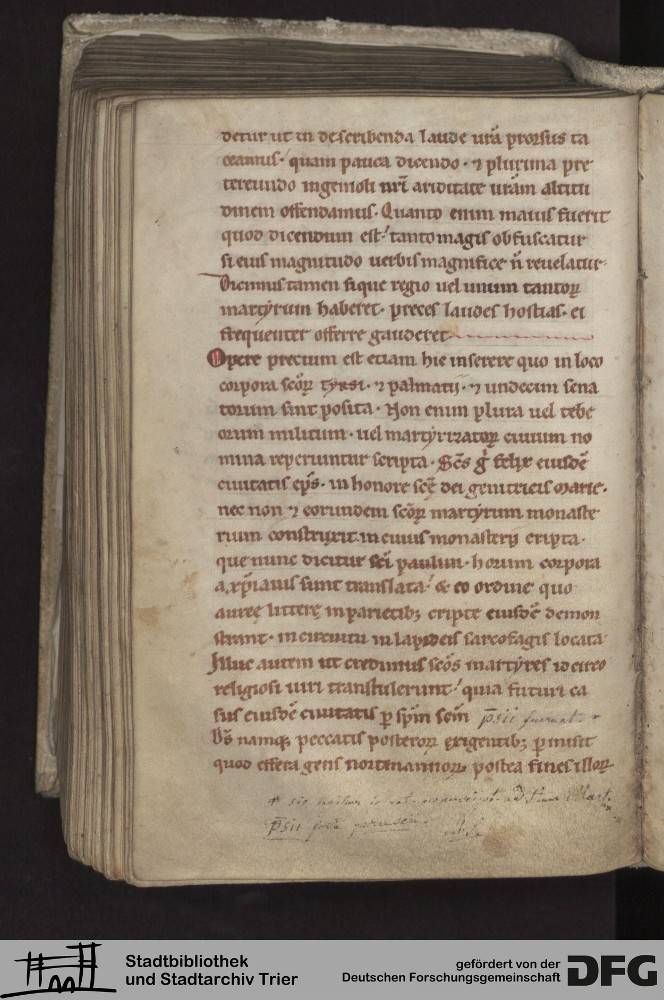 detur ut in describenda laude urā prorsus ta
ceamus· quam pauca dicendo · ⁊ plurima pre
tereundo ingenioli nrī ariditate urām altitu
dinem offendamus· Quanto enim maius fuerit
quod dicendum est· tanto magis obfuscatur
si eius magnitudo uerbis magnifice n̄ reuelatur·
Dicimus tamen si que regio uel unum tantoꝝ
martyrum haberet· preces laudes hostias· ei
frequenter offerre gauderet
Opere precium est etiam hic inserere quo in loco
corpora scōꝝ tyrsi· ⁊ palmatii· ⁊ undecim sena
torum sint posita· Non enim plura uel tebe
orum militum· uel martyrizatoꝝ ciuium no
mina reperiuntur scripta· Scs̄ g̊ felix eiusdē
ciuitatis ep̄s· in honore scę̄ dei genitricis marie·
nec non ⁊ eorundem scōꝝ martyrum monaste
rium construxit in cuius monasterij cripta·
que nunc dicitur scī paulini· horum corpora
a xp̄ianis sunt translata· & eo ordine quo
auree̜ littere̜ in parietibꝫ cripte eiusdē demon
strant· in circuitu in lapideis sarcofagis locata
Illuc autem ut credimus scōs martyres idcirco
religiosi uiri transtulerunt· quia futuri ca
sus eiusdē ciuitatis p̱ spm̄ scm̄ p̄scii fuerunt +
Ds̄ namqꝫ peccatis posteroꝝ exigentibꝫ p̱misit
quod effera gens nortmannoꝝ postea fines illoꝝ
+ sic
p̄scii
Stadtbibliothek
und Stadtarchiv Trier
gefördert von der
Deutschen Forschungsgemeinschaft
DFG